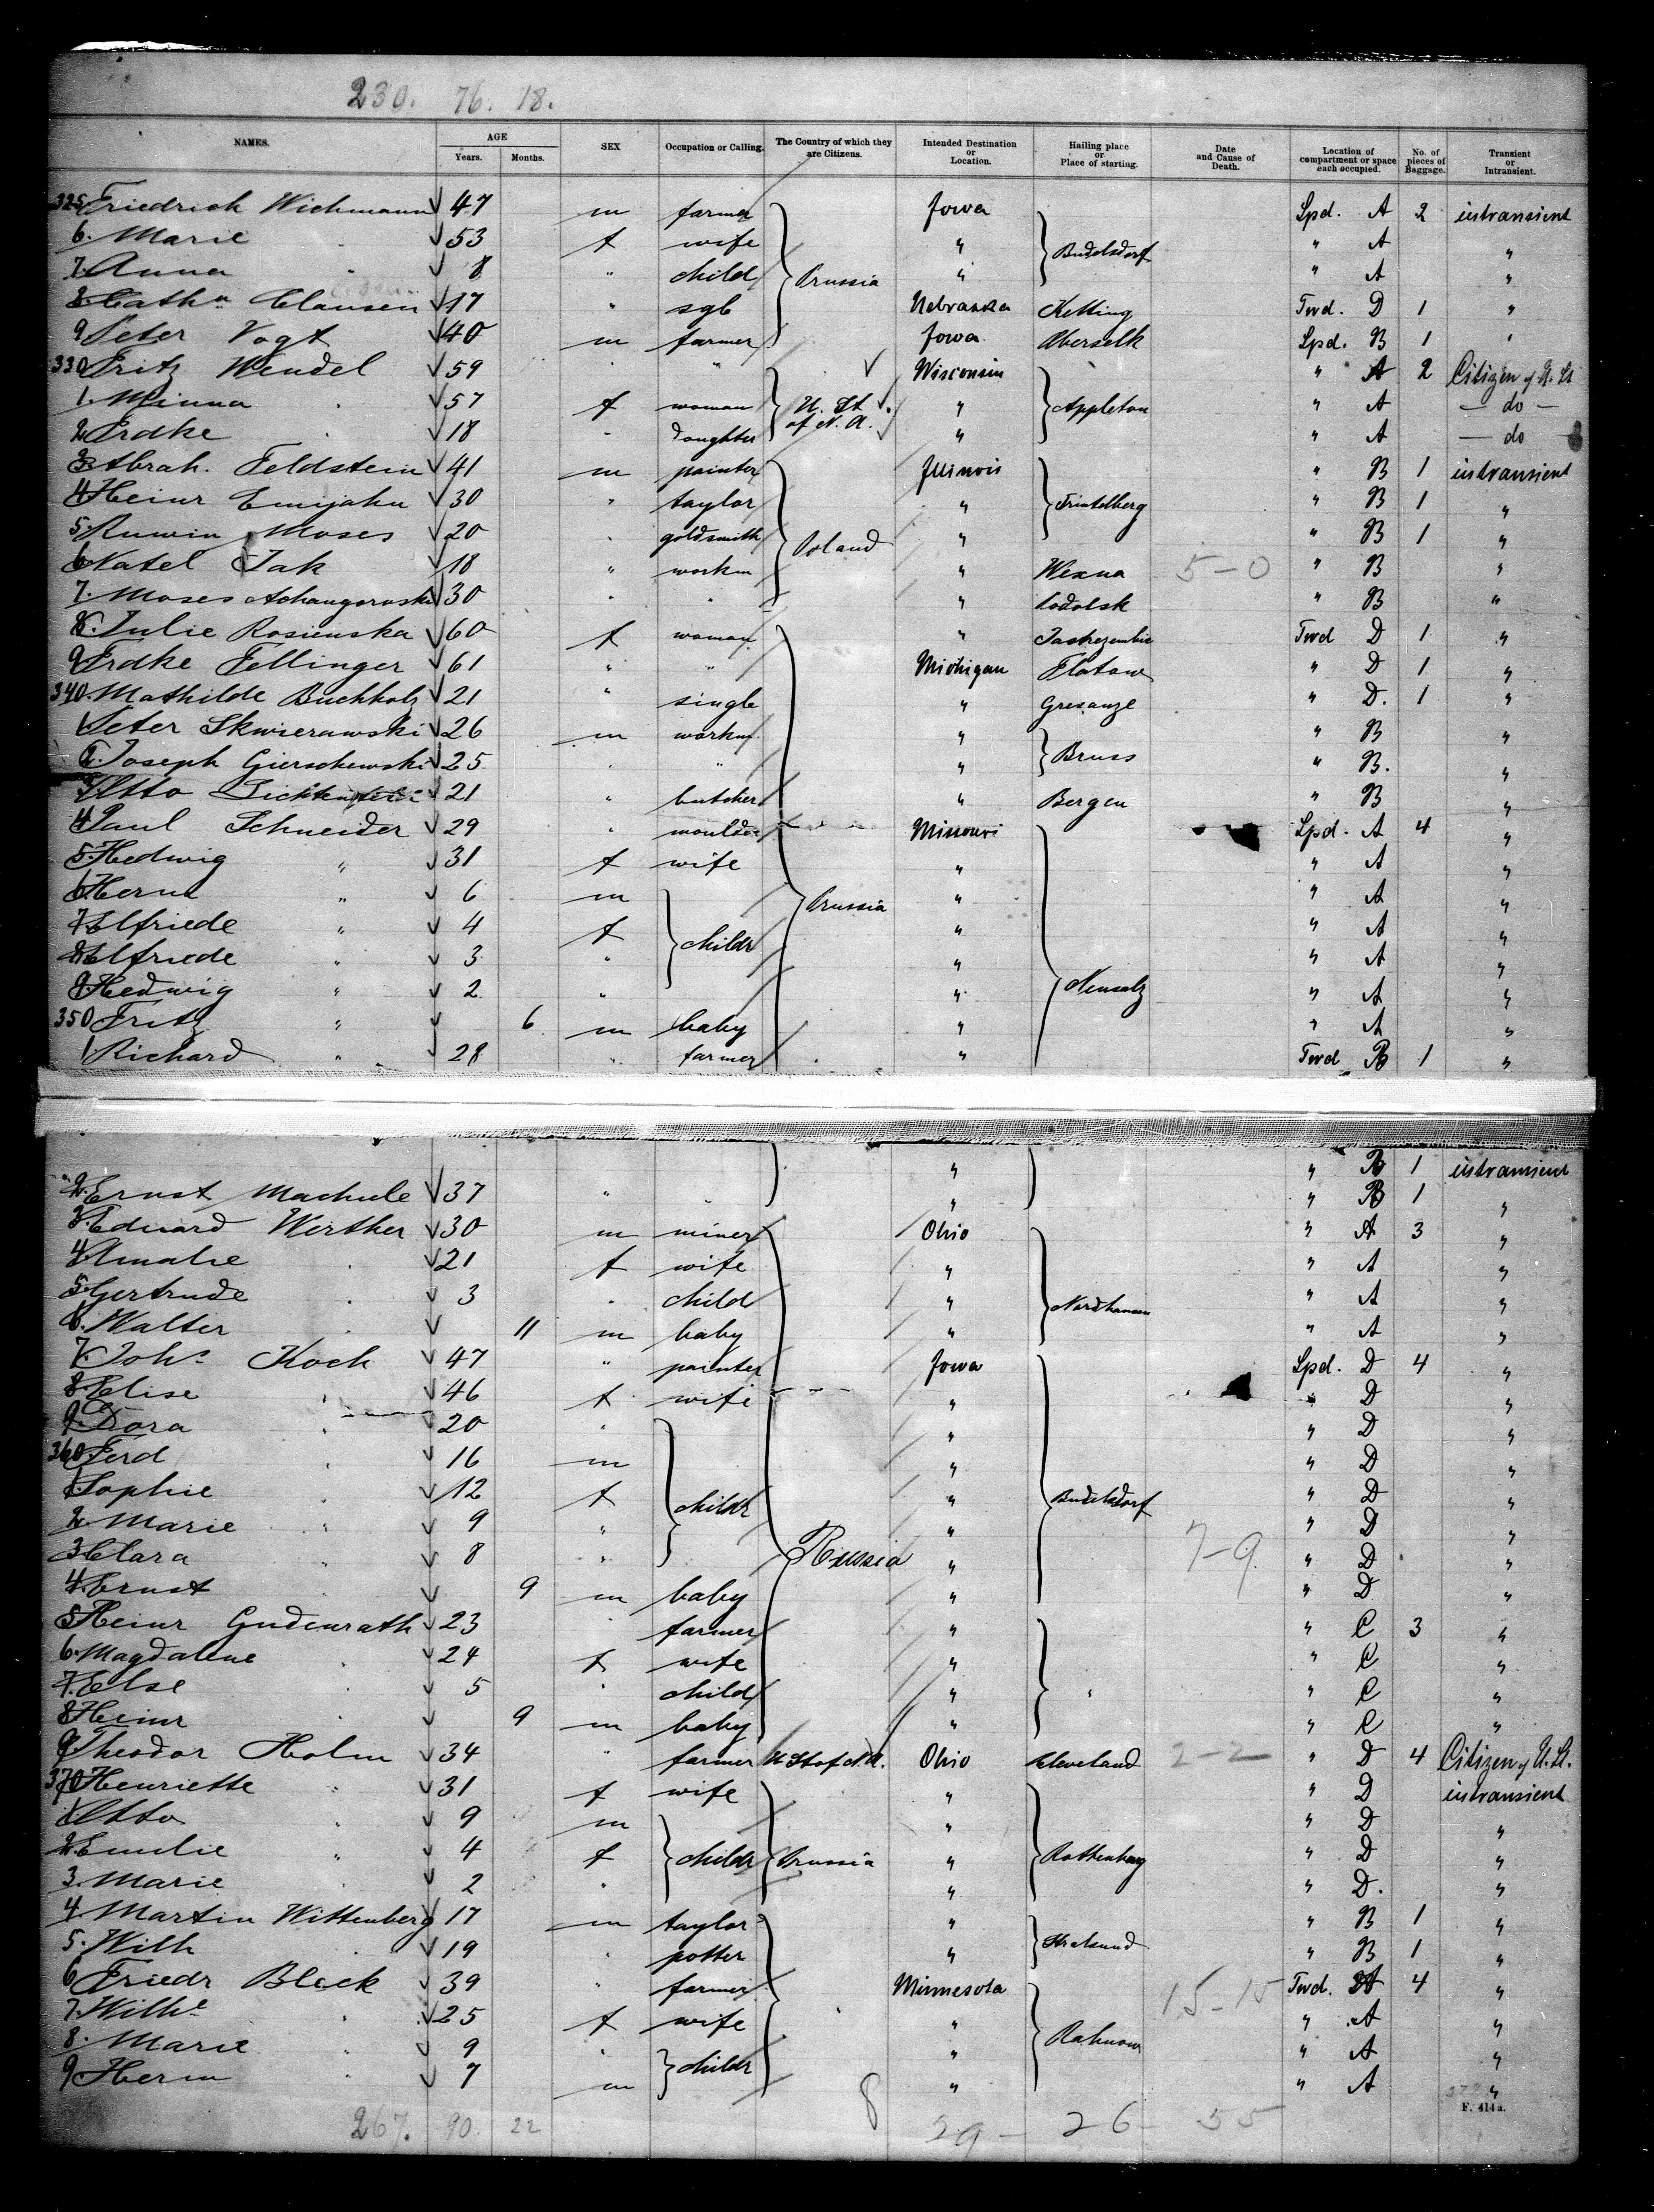 230. 76. 18.
NAMES. AGE Years. Months. SEX Occupation or Calling. The Country of which they are Citizens. Intended Destination or Location. Hailing place or Place of starting. Date and Cause of Death. Location of compartment or space each occupied. No. of pieces of Baggage. Transient or Intransient.
325 Friedrich Wichmann 47 m farmer Iowa Spd. A 2 intransient
6. Marie 53 f wife " Budelsdorf " A "
7. Anna " 8 " child Prussia " " A "
8. Cath. Clausen 17 " sgl Nebraska Ketting Twd. D 1 "
9 Peter Vogt 40 m farmer Iowa Oberselk Spd. B 1 "
330 Fritz Wendel 59 " " Wisconsin " A 2 Citizen of U. St
1. Minna 57 f woman U. St. of N. A. " Appleton " A — do —
2 Erdke 18 " daughter " " A — do —
3. Abrah. Feldstein 41 m painter Illinois " B 1 intransient
4 Heinr 30 " taylor " " B 1 "
5. Ruwin Moses 20 " goldsmith Poland " " B 1 "
6 Natel Jak 18 " workm " 5-0 " B "
7. Moses 30 " " " Podolsk " B "
8. Julie Rosienska 60 f woman " Twd D 1 "
9 Erdke Fellinger 61 " " Michigan Flatow " D 1 "
340. Mathilde Buchholz 21 " single " " D. 1 "
1 Peter Skwierawski 26 m workm " Bruss " B "
2. Joseph Gierschewski 25 " " " " B. "
3. Otto 21 " butcher " Bergen " B "
4 Paul Schneider 29 " moulder Missouri Spd. A 4 "
5. Hedwig " 31 f wife " " A "
6 Herm " 6 m Prussia " " A "
7. Elfriede " 4 f childr " " A "
8. Elfriede " 3 " " " A "
9 Hedwig " 2 " " Neusalz " A "
350 Fritz " 6 m baby " " A "
1 Richard " 28 " farmer " Twd B 1 "
" " B 1 intransient
2. Ernst Machule 37 " " " " B 1 "
3. Eduard Werther 30 m miner Ohio " A 3 "
4. Amalie 21 f wife " " A "
5. Gertrude 3 " child " Nordhausen " A "
6. Walter 11 m baby " " A "
7. Joh. Koch 47 " painter Iowa Spd. D 4 "
8. Elise 46 f wife " " D "
9. Dora 20 " " " D "
360 Ferd 16 m " " D "
1 Sophie 12 f childr " Budelsdorf " D "
2. Marie 9 " " " D "
3 Clara 8 " Russia " 7-9 " D "
4. Ernst 9 m baby " " D "
5 Heinr Gudenrath 23 " farmer " " C 3 "
6. Magdalene 24 f wife " " C "
7. Else 5 " child " " " C "
8 Heinr 9 m baby " " C "
9 Theodor Holm 34 " farmer U. St of N. A. Ohio Cleveland 2-2 " D 4 Citizen of U. St.
370 Henriette " 31 f wife " " D intransient
1 Otto 9 m " " D "
2. Emilie " 4 f childr Prussia " Rothenburg " D "
3. Marie 2 " " " D. "
4. Martin Wittenberg 17 m taylor " Stralsund " B 1 "
5. Wilh 19 " potter " " B 1 "
6 Friedr Block 39 " farmer Minnesota 15-15 Twd. A 4 "
7. Wilh. 25 f wife " " A "
8. Marie 9 " childr " " A "
9 Herm 7 m " " A "
267. 90. 22 8 29- 26- 55 F. 414a.